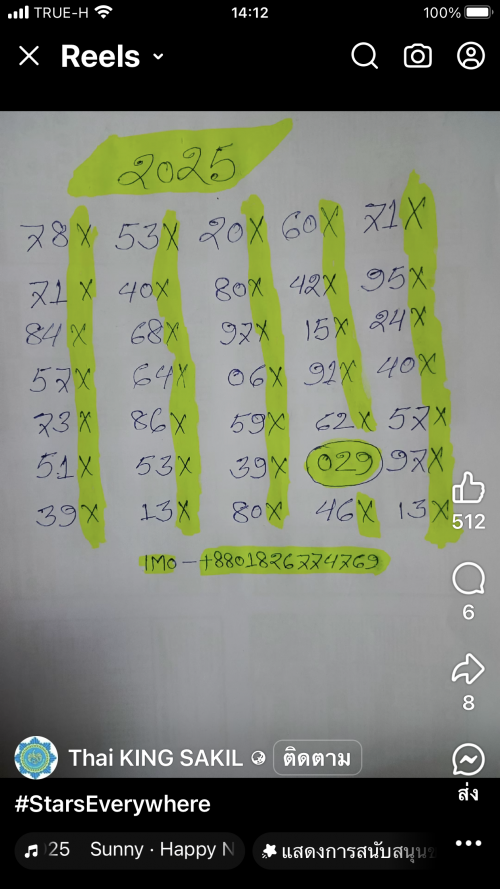 TRUE-H 14:12 100%
Reels
2025
78X 53X 20X 60X 71X
71X 40X 80X 42X 95X
84X 68X 97X 15X 24X
57X 64X 06X 91X 40X
73X 86X 59X 62X 57X
51X 53X 39X 029 97X
39X 13X 80X 46X 13X
IMO - +8801826774769
512
6
8
Thai KING SAKIL ติดตาม
ส่ง
#StarsEverywhere
025 Sunny · Happy N แสดงการสนับสนุน